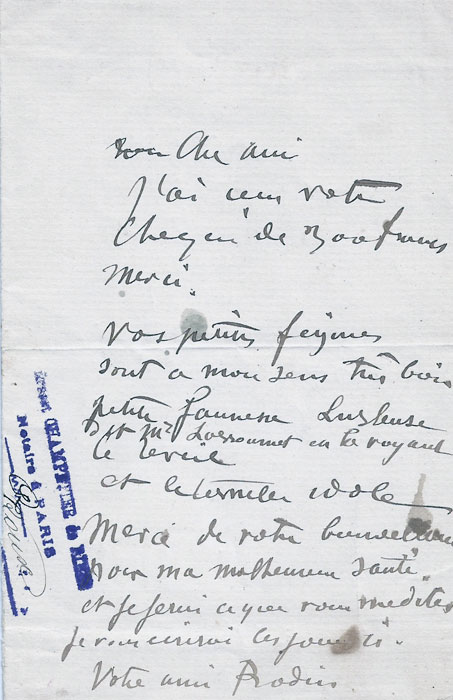 Cher ami
J'ai reçu votre
Cheque de 300 francs
Merci.
Vos petites figures
sont a mon sens très bien
petite faunesse
dit Mr en la voyant
le réveil
et l'éternelle idole
Merci de votre
pour ma malheureuse santé.
et je ferai ce que vous me dites
je vous écrirai ces jours ci.
Votre ami Rodin
CHAMPETIER de
Notaire à PARIS